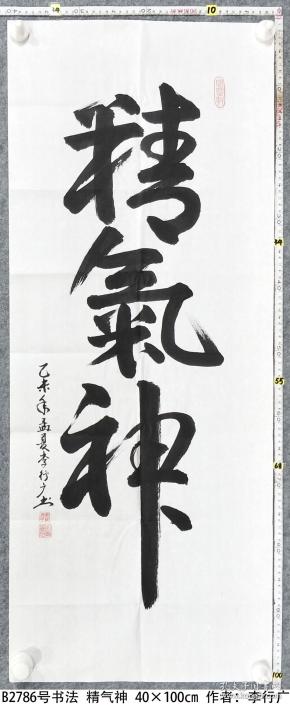 精氣神
乙未年孟夏李行广书
B2786号书法 精气神 40×100cm 作者：李行广